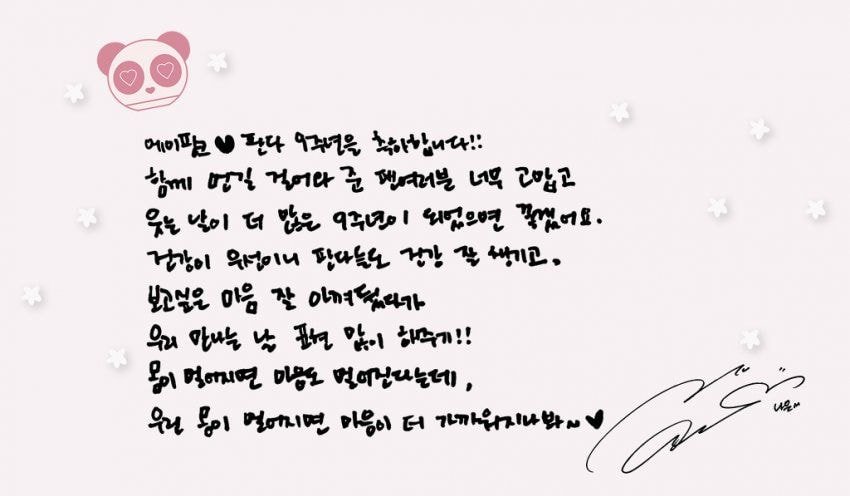 에이핑크♥판다 9주년을 축하합니다!!
함께 먼길 걸어와 준 팬여러분 너무 고맙고
웃는 날이 더 많은 9주년이 되었으면 좋겠어요.
건강이 우선이니 판다들도 건강 잘 챙기고,
보고싶은 마음 잘 아껴뒀다가
우리 만나는 날 표현 많이 해주기!!
몸이 멀어지면 마음도 멀어진다는데,
우린 몸이 멀어지면 마음이 더 가까워지나봐~♥
나은